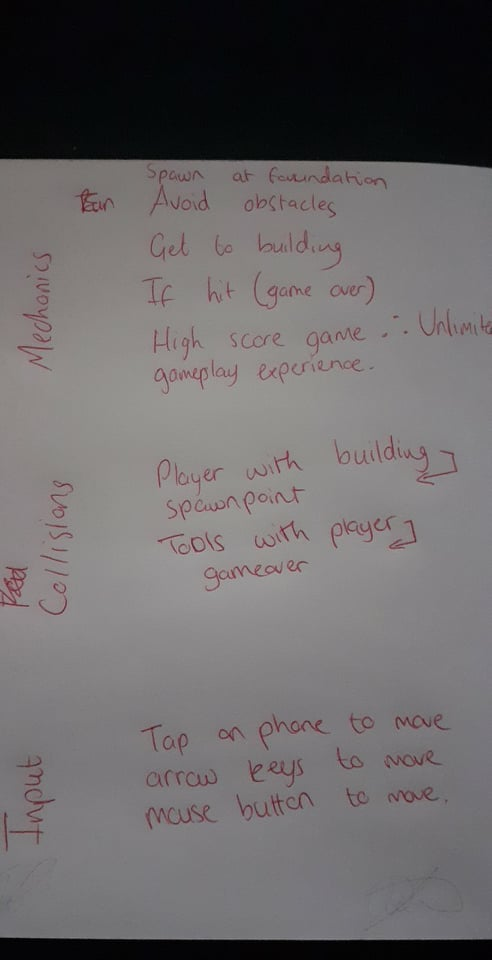 Mechanics
Spawn at foundation
Avoid obstacles
Get to building
If hit (game over)
High score game ∴ Unlimite
gameplay experience.
Collisions
Player with building
spawnpoint
Tools with player
gameover
Input
Tap on phone to move
arrow keys to move
mouse button to move.